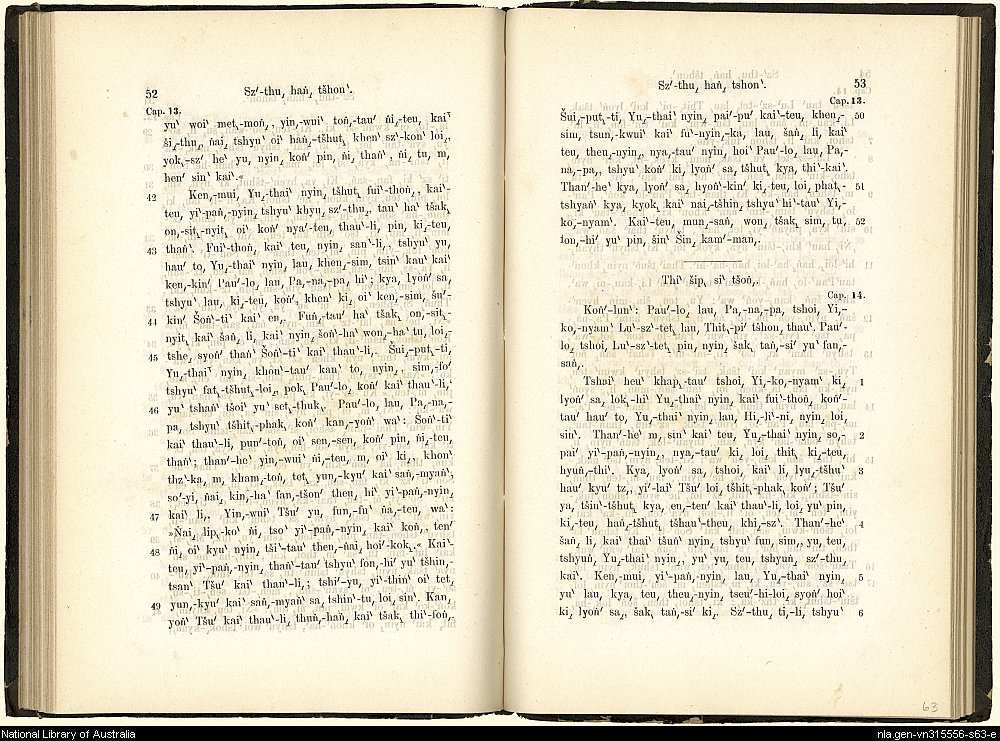 52 Sz′-thu¸ haṅ¸ tšhou‵.
Cap. 13.
yu‵ woi‵ met¸-moṅ¸, yin¸-wui‵ toṅ¸-tau′ ṅi¸-teu, kai‵
ši¸-thu¸, ṅai¸ tshyu‵ oi‵ haṅ¸-tšhut¸ khen′ sz‵-kon‵ loi¸,
yok¸-sz′ he‵ yu, nyin¸ koṅ′ pin, ṅi, thaṅ‵, ṅi, tu, m,
hen′ sin‵ kai‵.«
42 Ken¸-mui, Yu¸-thai‵ nyin, tšhut¸ fui‵-thoṅ¸, kai‵-
teu, yi‵-paṅ¸-nyin, tshyu‵ khyu, sz′-thu¸, tau‵ ha‵ tšak¸
on¸-sit¸-nyit¸ oi‵ koṅ′ nya′-teu, thau‵-li, pin, ki¸-teu,
43 thaṅ‵. Fui‵-thoṅ, kai‵ teu, nyin, san‵-li¸, tshyu‵ yu,
hau′ to, Yu¸-thai‵ nyin, lau, khen¸-sim, tsin‵ kau‵ kai‵
ken¸-kin′ Pau′-lo¸ lau, Pa¸-na¸-pa, hi‵; kya, lyoṅ′ sa,
tshyu‵ lau, ki¸-teu, koṅ′, khen‵ ki, oi‵ ken¸-sim, šu′-
44 kin′ Šoṅ‵-ti‵ kai‵ en¸. Fuṅ¸-tau′ ha‵ tšak¸ on¸-sit¸-
nyit¸ kai‵ šaṅ, li, kai‵ nyin, šoṅ‵-ha‵ won¸-ha‵ tu, loi¸-
45 tshe, syoṅ′ thaṅ‵ Šoṅ‵-ti‵ kai‵ thau‵-li¸. Šui¸-put¸-ti,
Yu¸-thai‵ nyin, khon‵-tau′ kan‵ to, nyin¸, sim¸-fo′
tshyu‵ fat¸-tšhut¸-loi¸, pok¸ Pau′-lo¸ koṅ′ kai‵ thau‵-li,
46 yu‵ tshaṅ‵ tšoi‵ yu‵ set¸-thuk¸. Pau′-lo¸ lau, Pa¸-na¸-
pa, tshyu‵ tšhit¸-phak¸ koṅ′ kan¸-yoṅ‵ wa‵: Šoṅ‵-ti‵
kai‵ thau‵-li, pun′-toṅ, oi‵ sen¸-sen, koṅ′ pin, ṅi¸-teu,
thaṅ‵; than′-he‵ yin¸-wui‵ ṅi¸-teu, m, oi‵ ki¸, khon‵
thz‵-ka, m, kham¸-toṅ, tet¸ yun¸-kyu′ kai‵ saṅ¸-myaṅ‵;
so′-yi, ṅai, kin¸-ha‵ fan¸-tšon′ theu, hi‵ yi‵-paṅ¸-nyin,
47 kai‵ li¸. Yin¸-wui‵ Tšu′ yu, fun¸-fu‵ ṅa¸-teu, wa‵:
»Ṅai, lip¸-ko‵ ṅi, tso‵ yi‵-paṅ¸-nyin, kai‵ koṅ¸, ten′
48 ṅi, oi‵ kyu‵ nyin, tši‵-tau‵ then¸-ṅai, hoi′-kok¸.« Kai‵-
teu, yi‵-paṅ¸-nyin, thaṅ‵-tau′ tshyu‵ fon¸-hi′ yu‵ tšhin¸-
tsan‵ Tšu′ kai‵ thau‵-li¸; tshi′-yu, yi‵-thin‵ oi‵ tet¸
yun¸-kyu′ kai‵ saṅ¸-myaṅ‵ sa, tshin‵-tu, loi, sin‵. Kan¸
49 yoṅ‵ Tšu′ kai‵ thau‵-li, thuṅ¸-haṅ¸ kai‵ tšak¸ thi‵-foṅ¸.
Sz′-thu¸ haṅ¸ tshon‵. 53
Cap. 13.
Šui¸-put¸-ti, Yu¸-thai‵ nyin, pai′-pu′ kai‵-teu, khen¸- 50
sim, tsun¸-kwui‵ kai‵ fu‵-nyin¸-ka, lau, šaṅ, li, kai‵
teu, theu¸-nyin¸, nya¸-tau′ nyin, hoi‵ Pau′-lo¸ lau, Pa¸-
na¸-pa¸, tshyu‵ koṅ′ ki, lyoṅ′ sa, tšhut¸ kya, thi‵-kai‵.
Than′-he‵ kya, lyoṅ′ sa, hyoṅ‵-kin′ ki, teu, loi, phat¸- 51
tshyaṅ‵ kya, kyok¸ kai‵ nai¸-tšhin, tshyu‵ hi‵-tau‵ Yi¸-
ko¸-nyam‵. Kai‵-teu, mun¸-saṅ, won, tšak¸ sim, tu, 52
lon¸-hi′ yu‵ pin, šin‵ Šin, kam′-man¸.
Thi‵ šip¸ si‵ tšoṅ¸.
Cap. 14.
Koṅ′-lun‵: Pau′-lo¸ lau, Pa¸-na¸-pa, tshoi, Yi¸-
ko¸-nyam‵ Lu‵-sz‵-tet¸ lau, Thit¸-pi′ tšhon, thau‵. Pau′-
lo¸ tshoi, Lu‵-sz‵-tet¸ pin, nyin, šak¸ taṅ¸-si′ yu‵ fan¸-
saṅ¸.
Tshai‵ heu‵ khap¸-tau′ tshoi, Yi¸-ko¸-nyam‵ ki, 1
lyoṅ′ sa, lok¸-hi‵ Yu¸-thai‵ nyin, kai‵ fui‵-thoṅ, koṅ′-
tau′ hau′ to, Yu¸-thai‵ nyin, lau, Hi¸-li‵-ni, nyin, loi,
sin‵. Than′-he‵ m, sin‵ kai‵ teu, Yu¸-thai‵ nyin, so¸- 2
pai′ yi‵-paṅ¸-nyin¸, nya¸-tau′ ki, loi, thit¸ ki¸-teu,
hyuṅ¸-thi‵. Kya, lyoṅ′ sa, tshoi, kai‵ li, lyu¸-tšhu‵ 3
hau′ kyu′ tz¸, yi′-lai‵ Tšu′ loi, tšhit¸-phak¸ koṅ′; Tšu′
ya, tšin‵-tšhut¸ kya, en¸-ten′ kai‵ thau‵-li, loi, yu‵ pin,
ki¸-teu, haṅ¸-tšhut¸ tšhau‵-theu, khi¸-sz‵. Than′-he‵ 4
šaṅ, li, kai‵ thai‵ tšuṅ‵ nyin, tshyu‵ fun, sim¸, yu, teu,
tshyuṅ, Yu¸-thai‵ nyin¸, yu‵ yu, teu, tshyuṅ, sz′-thu,
kai‵. Ken¸-mui, yi‵-paṅ¸-nyin, lau, Yu¸-thai‵ nyin, 5
yu‵ lau, kya, teu, theu¸-nyin, tseu‵-hi-loi, syoṅ′ hoi‵
ki, lyoṅ′ sa¸, šak¸ taṅ¸-si′ ki¸. Sz′-thu¸ ti¸-li, tshyu‵ 6
63
National Library of Australia
nla.gen-vn315556-s63-e